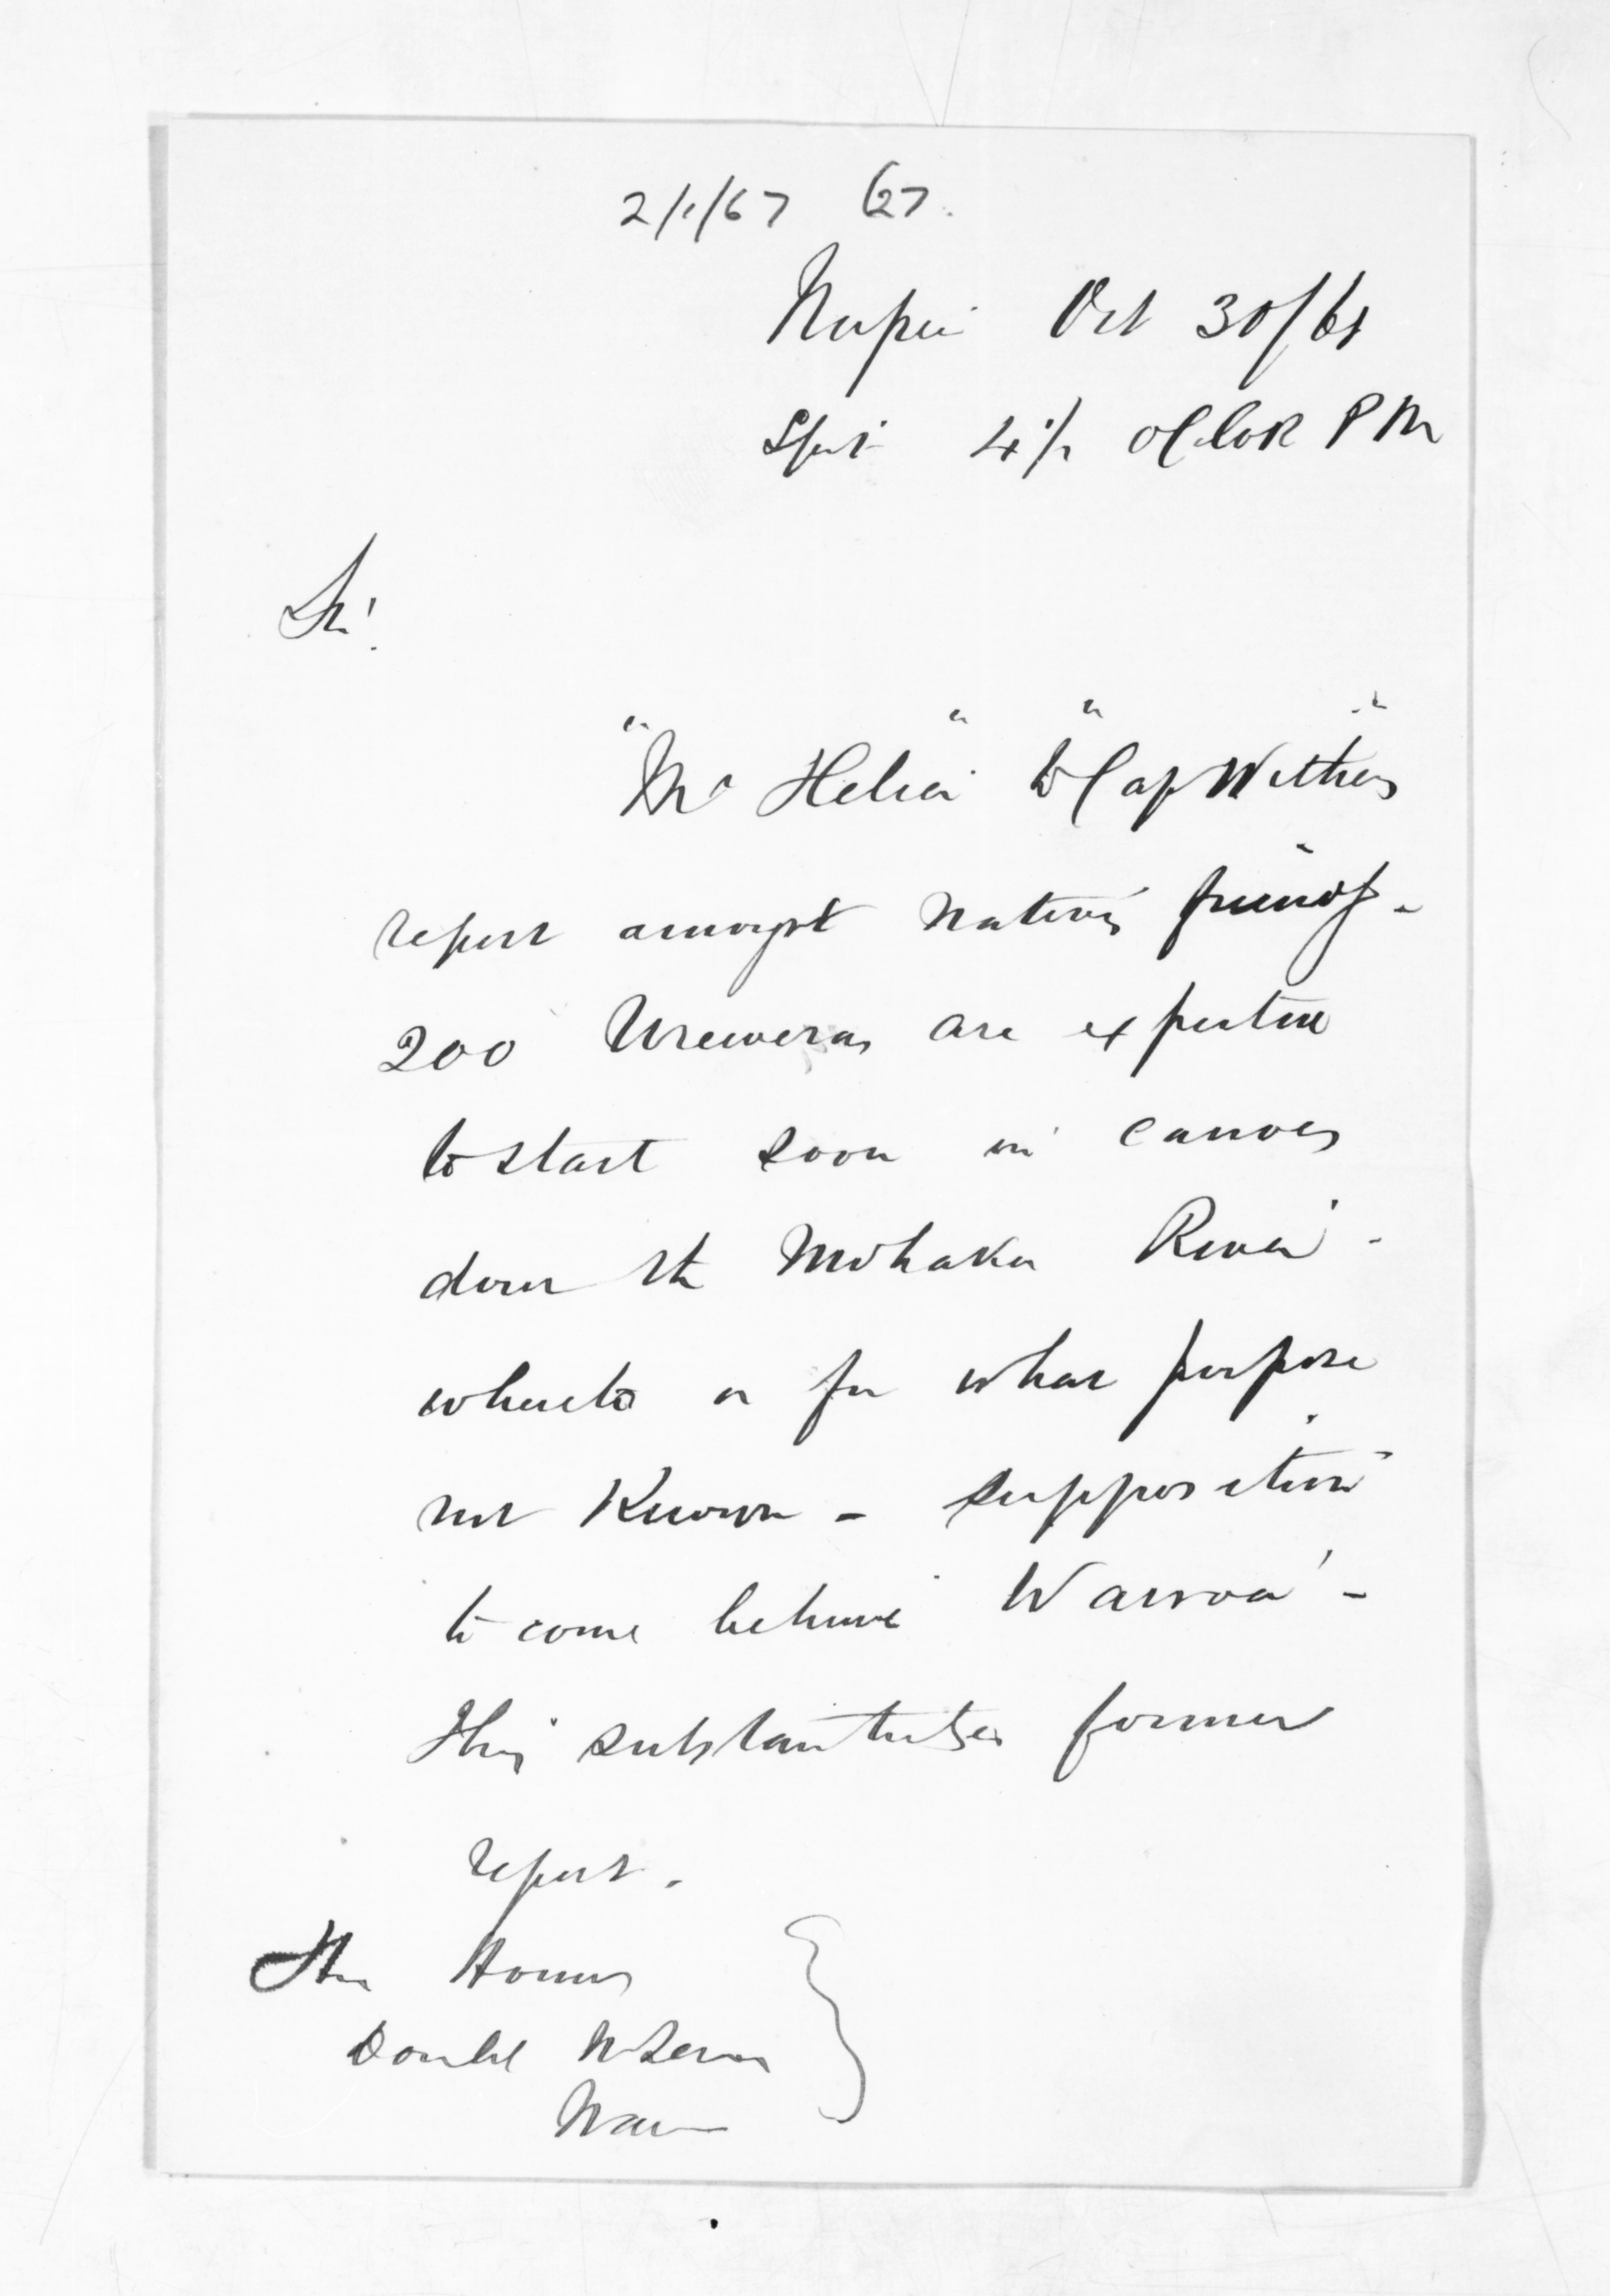 2/1/67 627.
Napier Oct 30/64
4 1/2 oClok PM
Sir!
"Mr Helier" to "Cap Withers"
report amongst natives friendly -
200 Ureweras are expected
to start soon in canoes
down the Mohaka River -
whereto or for what purpose
not Known - supposition
to come behind Wairoa -
This substantiates former
report.
His Honour
Donald McLean